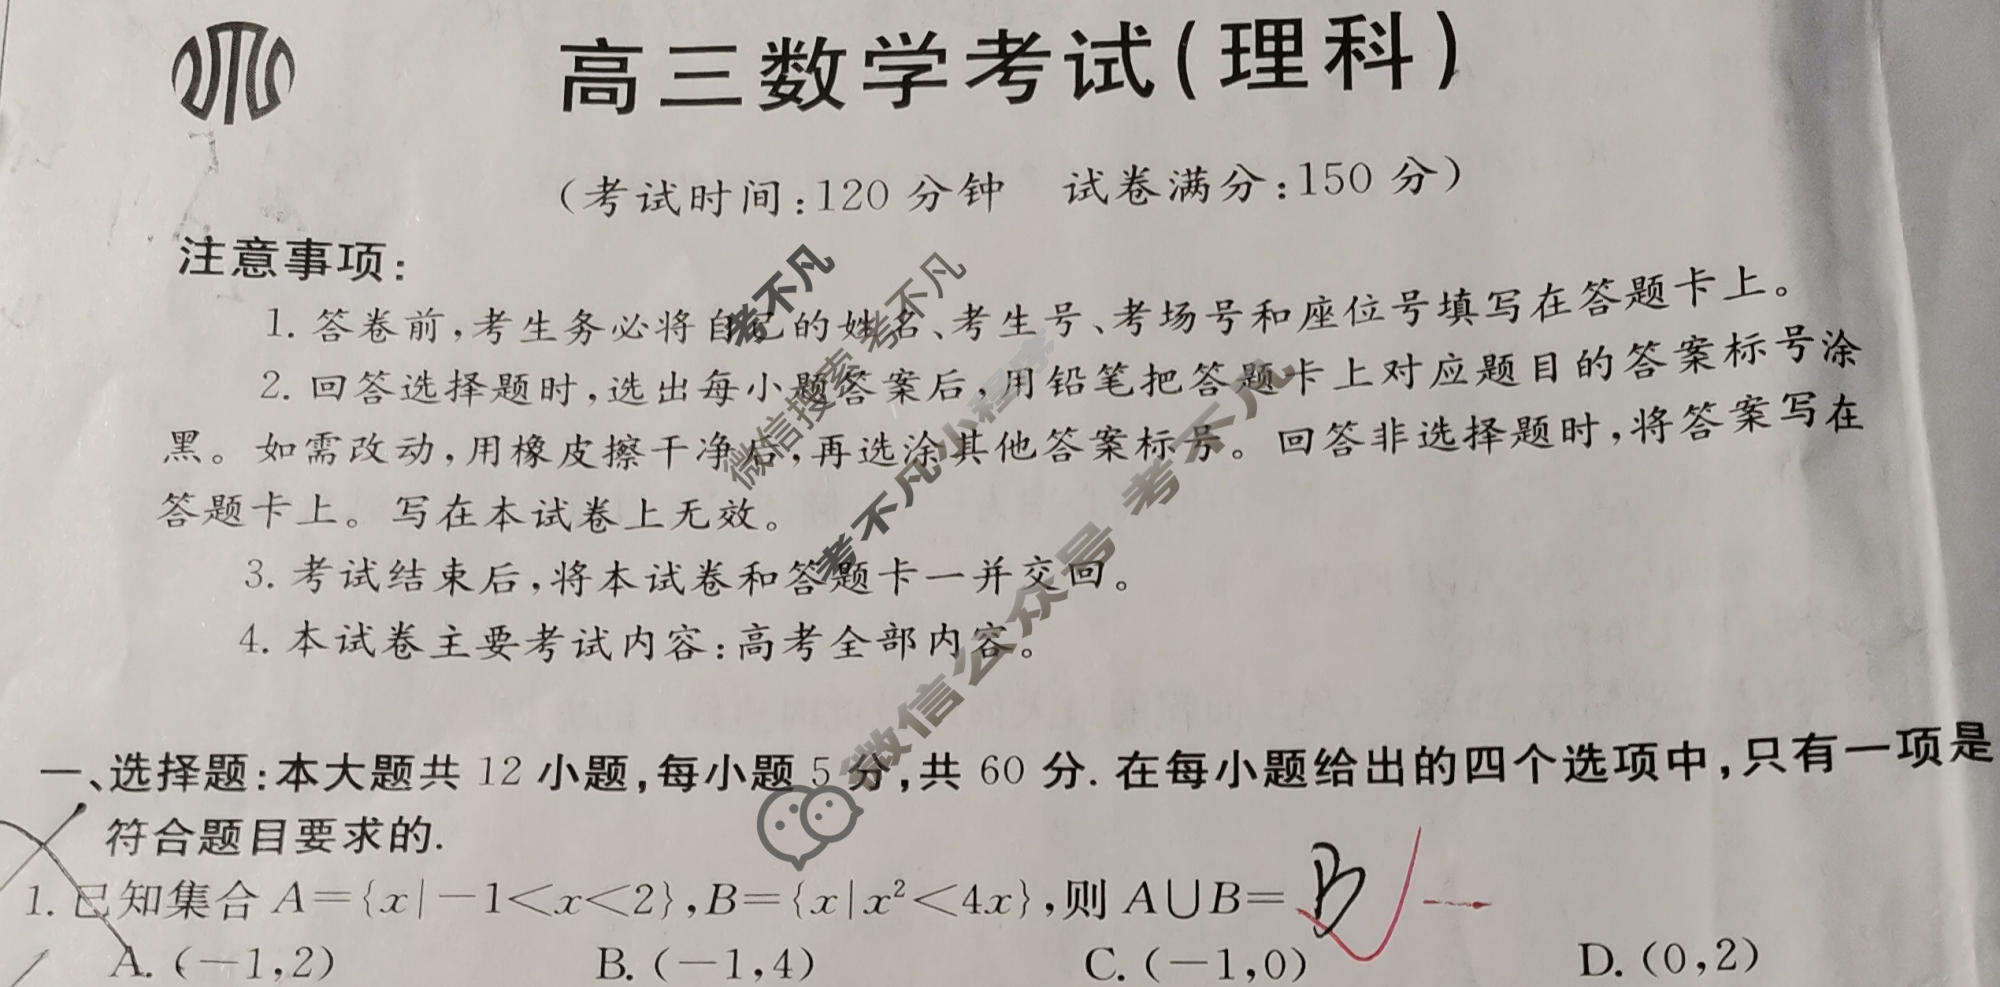 高三数学考试(理科)
(考试时间:120分钟 试卷满分:150分)
注意事项:
1. 答卷前,考生务必将自己的姓名、考生号、考场号和座位号填写在答题卡上。
2. 回答选择题时,选出每小题答案后,用铅笔把答题卡上对应题目的答案标号涂
黑。如需改动,用橡皮擦干净后,再选涂其他答案标号。回答非选择题时,将答案写在
答题卡上。写在本试卷上无效。
3. 考试结束后,将本试卷和答题卡一并交回。
4. 本试卷主要考试内容:高考全部内容。
考不凡
微信搜索 考不凡
考不凡小程序
微信公众号 考不凡
一、选择题:本大题共 12 小题,每小题 5 分,共 60 分. 在每小题给出的四个选项中,只有一项是
符合题目要求的.
1. 已知集合 A={x|-1<x<2},B={x|x²<4x},则 A∪B= B
A. (-1,2) B. (-1,4) C. (-1,0) D. (0,2)